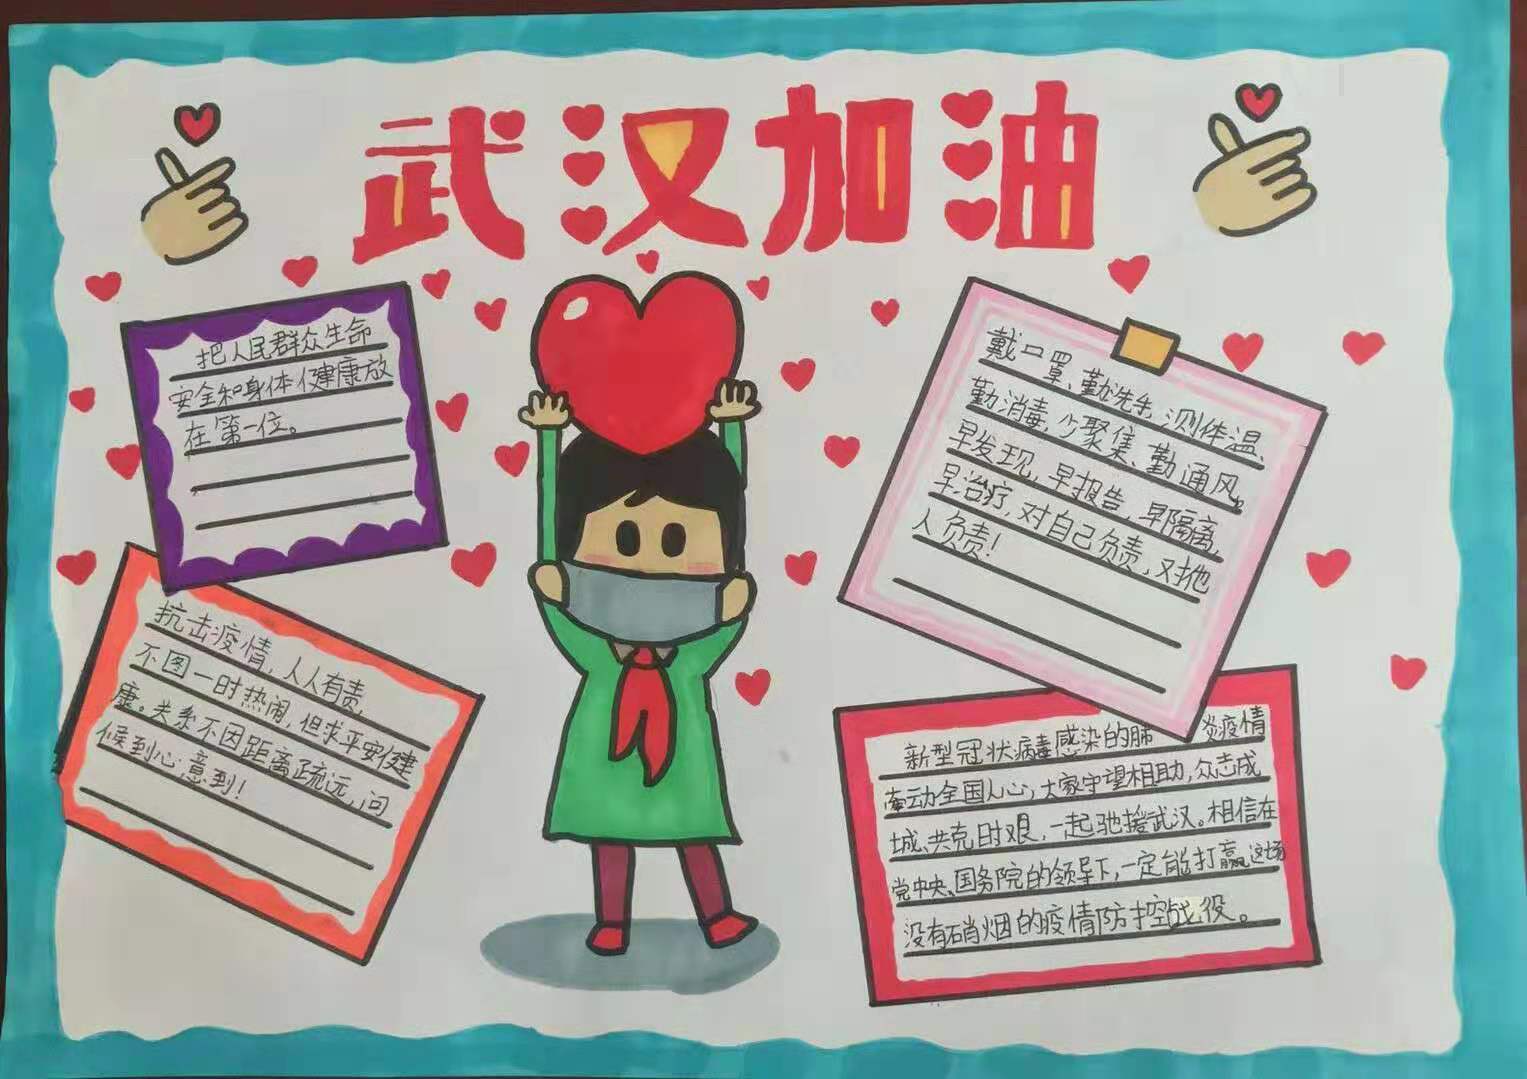 武汉加油
把人民群众生命
安全和身体健康放
在第一位。
戴口罩、勤洗手、测体温、
勤消毒，少聚集、勤通风。
早发现，早报告，早隔离，
早治疗，对自己负责，对他
人负责！
抗击疫情，人人有责，
不图一时热闹，但求平安健
康。关系不因距离疏远，问
候到心意到！
新型冠状病毒感染的肺炎疫情
牵动全国人心，大家守望相助，众志成
城、共克时艰，一起驰援武汉。相信在
党中央、国务院的领导下，一定能打赢这场
没有硝烟的疫情防控战役。